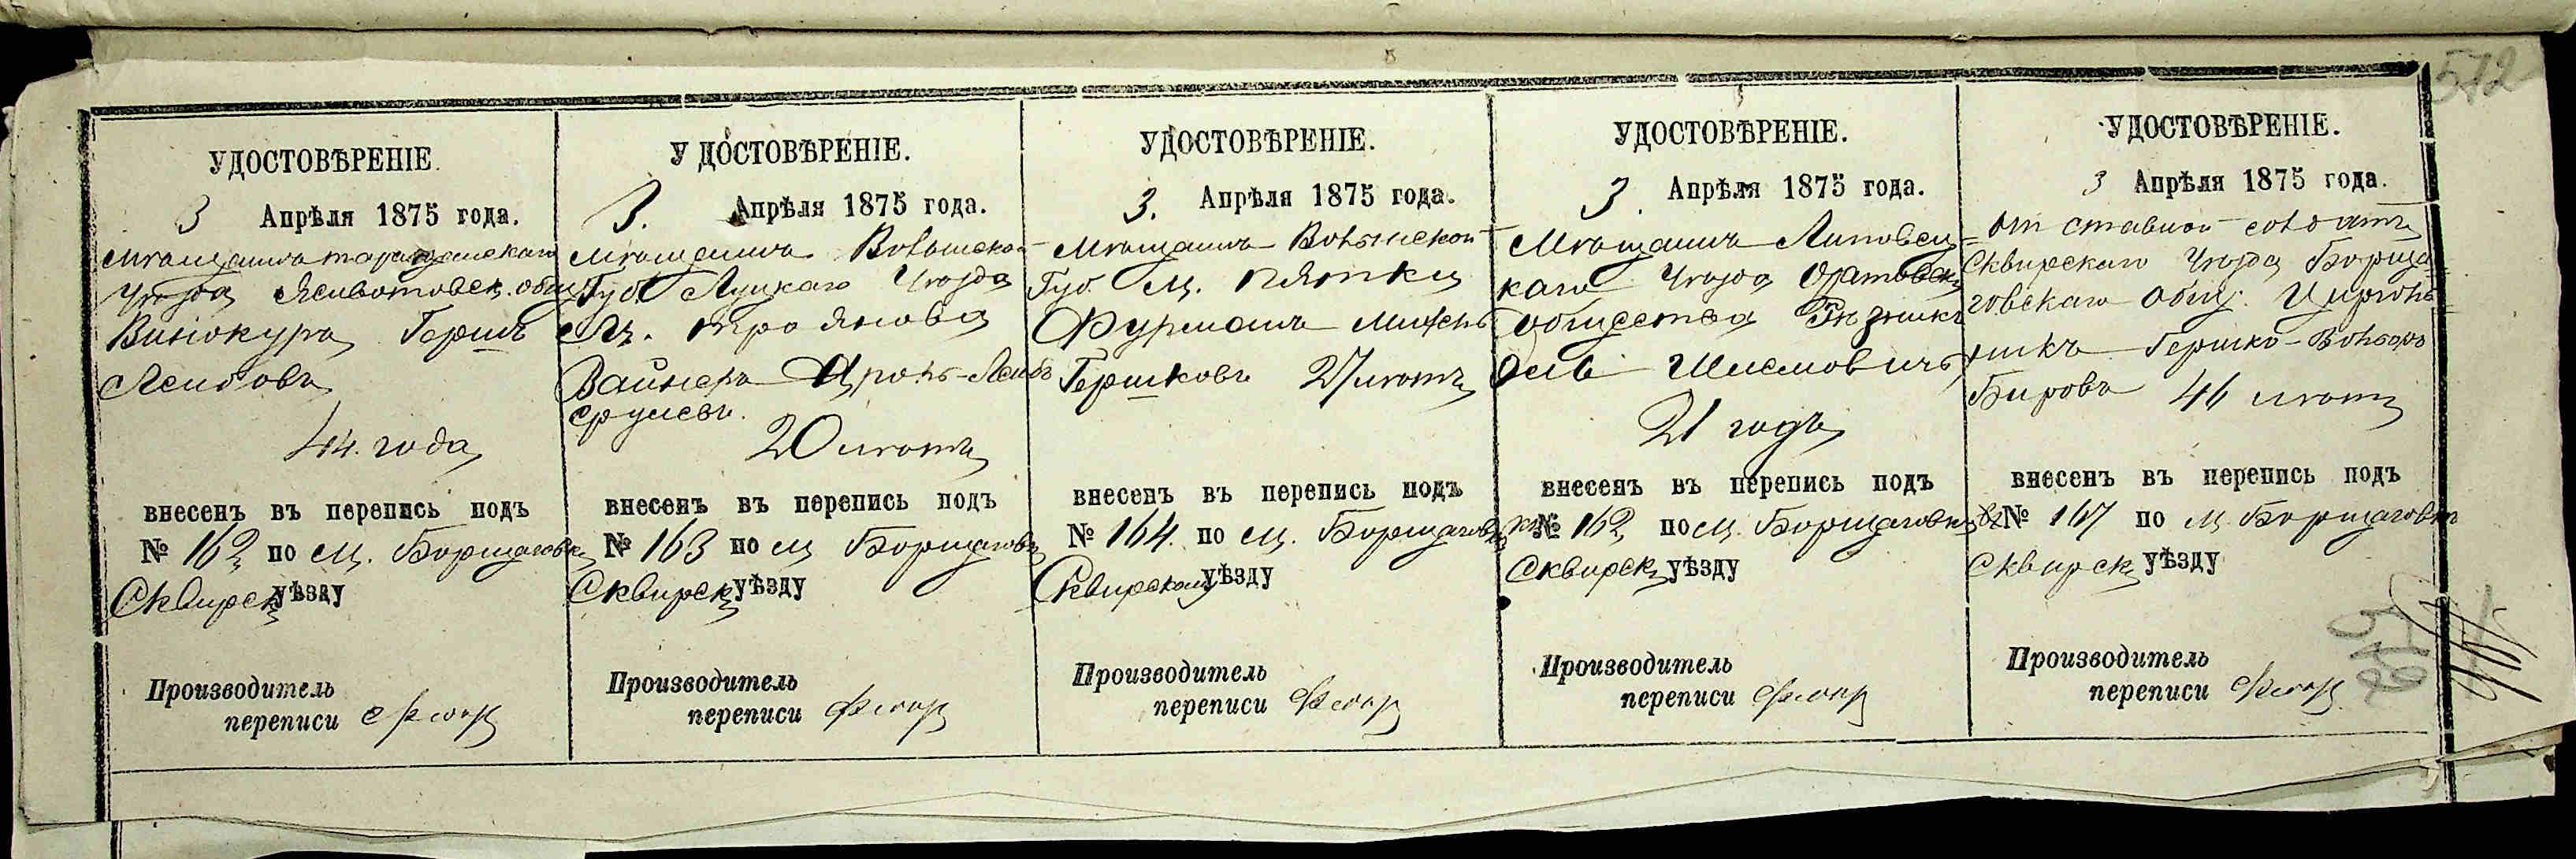 572
УДОСТОВѢРЕНІЕ.
3 Апрѣля 1875 года.
Мѣщанинъ таращанскаго
Уѣзда Ясиветовск. общ
Винокуръ Гершъ
Лейбовъ
44. года
внесенъ въ перепись подъ
№ 162 по м. Борщаговк
Сквирск уѣзду
Производитель
переписи
УДОСТОВѢРЕНІЕ.
3. Апрѣля 1875 года.
Мѣщанинъ Волынской
Губ Луцкаго Уѣзда
м.
Вайнеръ Аронъ-Лейбъ
Сруlевъ.
20 лѣтъ
внесенъ въ перепись подъ
№ 163 по м Борщаговк
Сквирск уѣзду
Производитель
переписи
УДОСТОВѢРЕНІЕ.
3. Апрѣля 1875 года.
Мѣщанинъ Волынской
Губ м. Пятки
Фурманъ
Гершковъ 27 лѣтъ
внесенъ въ перепись подъ
№ 164. по м. Борщаговк
Сквирскому уѣзду
Производитель
переписи
УДОСТОВѢРЕНІЕ.
3. Апрѣля 1875 года.
Мѣщанинъ Липовец-
каго Уѣзда Оратовск
общества Рѣзникъ
Шлемовичъ
21 годъ
внесенъ въ перепись подъ
№ 162 по м. Борщаговк
Сквирск уѣзду
Производитель
переписи
УДОСТОВѢРЕНІЕ.
3 Апрѣля 1875 года.
отставной солдатъ
Сквирскаго Уѣзда Борща-
говскаго общ. Цирюль-
никъ Гершко-Вольъ
Бировъ 46 лѣтъ
внесенъ въ перепись подъ
№ 167 по м. Борщаговк
Сквирск уѣзду
Производитель
переписи